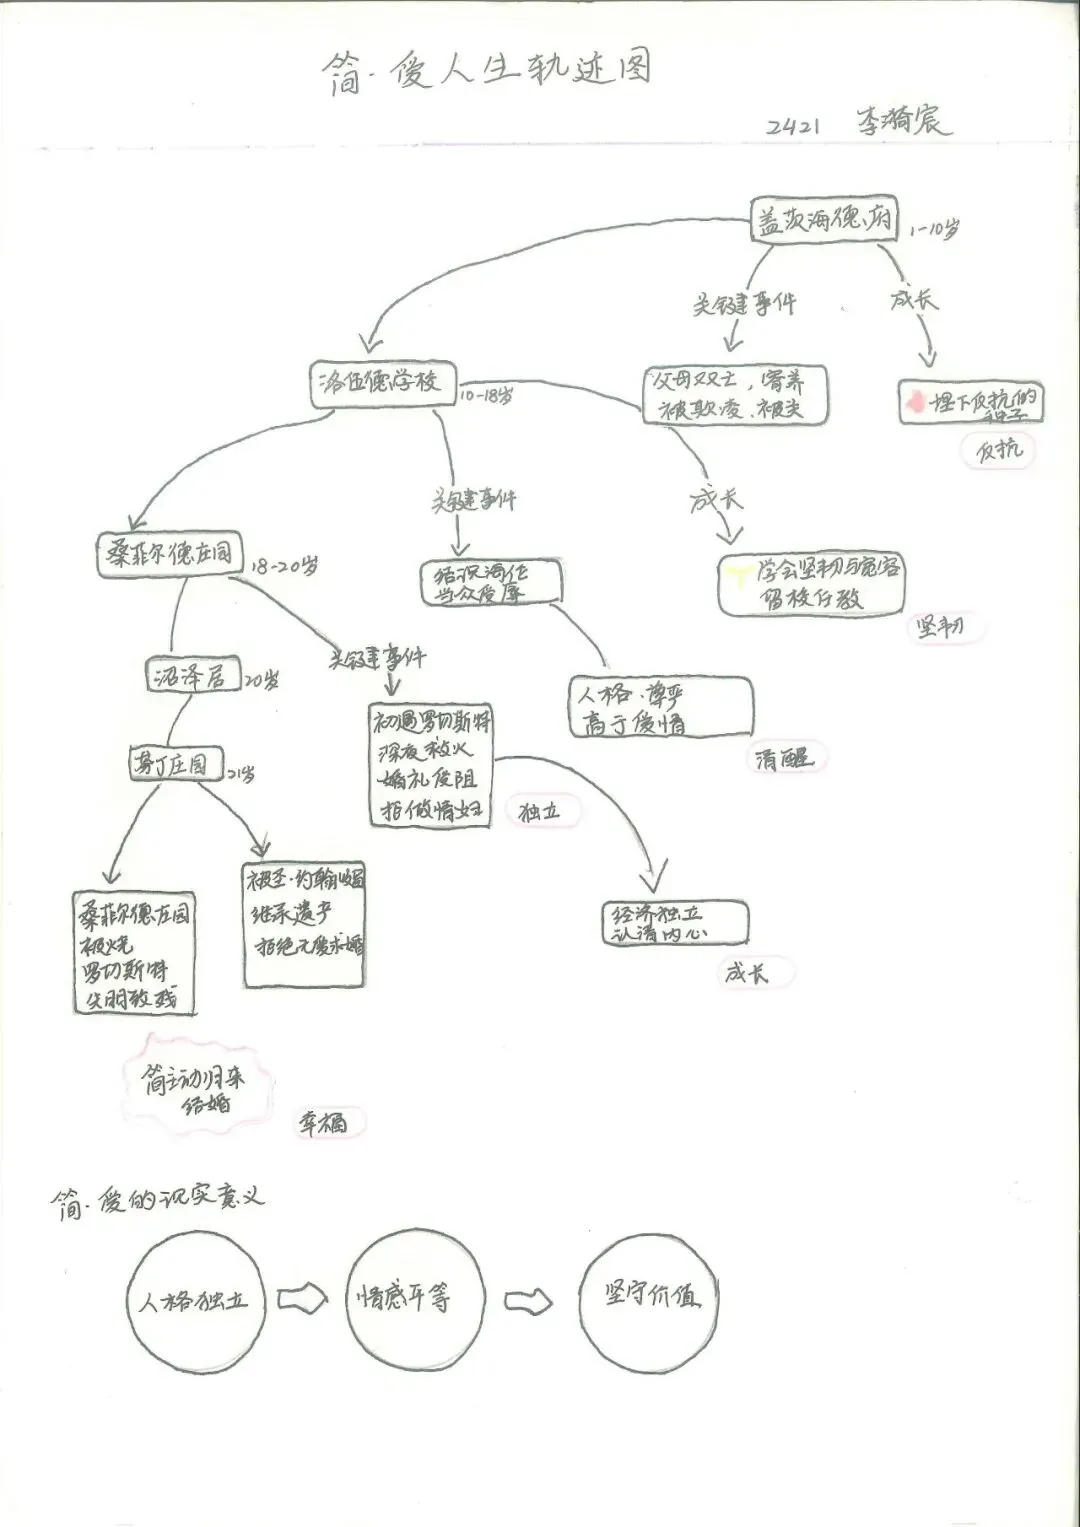 简·爱人生轨迹图
2421 李漪宸
盖茨海德府
1-10岁
关键事件
成长
洛伍德学校
10-18岁
父母双亡，寄养
被欺凌、被关
埋下反抗的
种子
反抗
关键事件
成长
桑菲尔德庄园
18-20岁
结识海伦
当众受辱
学会坚韧与宽容
留校任教
坚韧
沼泽居
20岁
关键事件
人格·尊严
高于爱情
清醒
初遇罗切斯特
深夜救火
婚礼受阻
拒做情妇
独立
芬丁庄园
21岁
桑菲尔德庄园
被烧
罗切斯特
失明致残
被圣·约翰收留
继承遗产
拒绝无爱求婚
经济独立
认清内心
成长
简主动归来
结婚
幸福
简·爱的现实意义
人格独立
情感平等
坚守价值